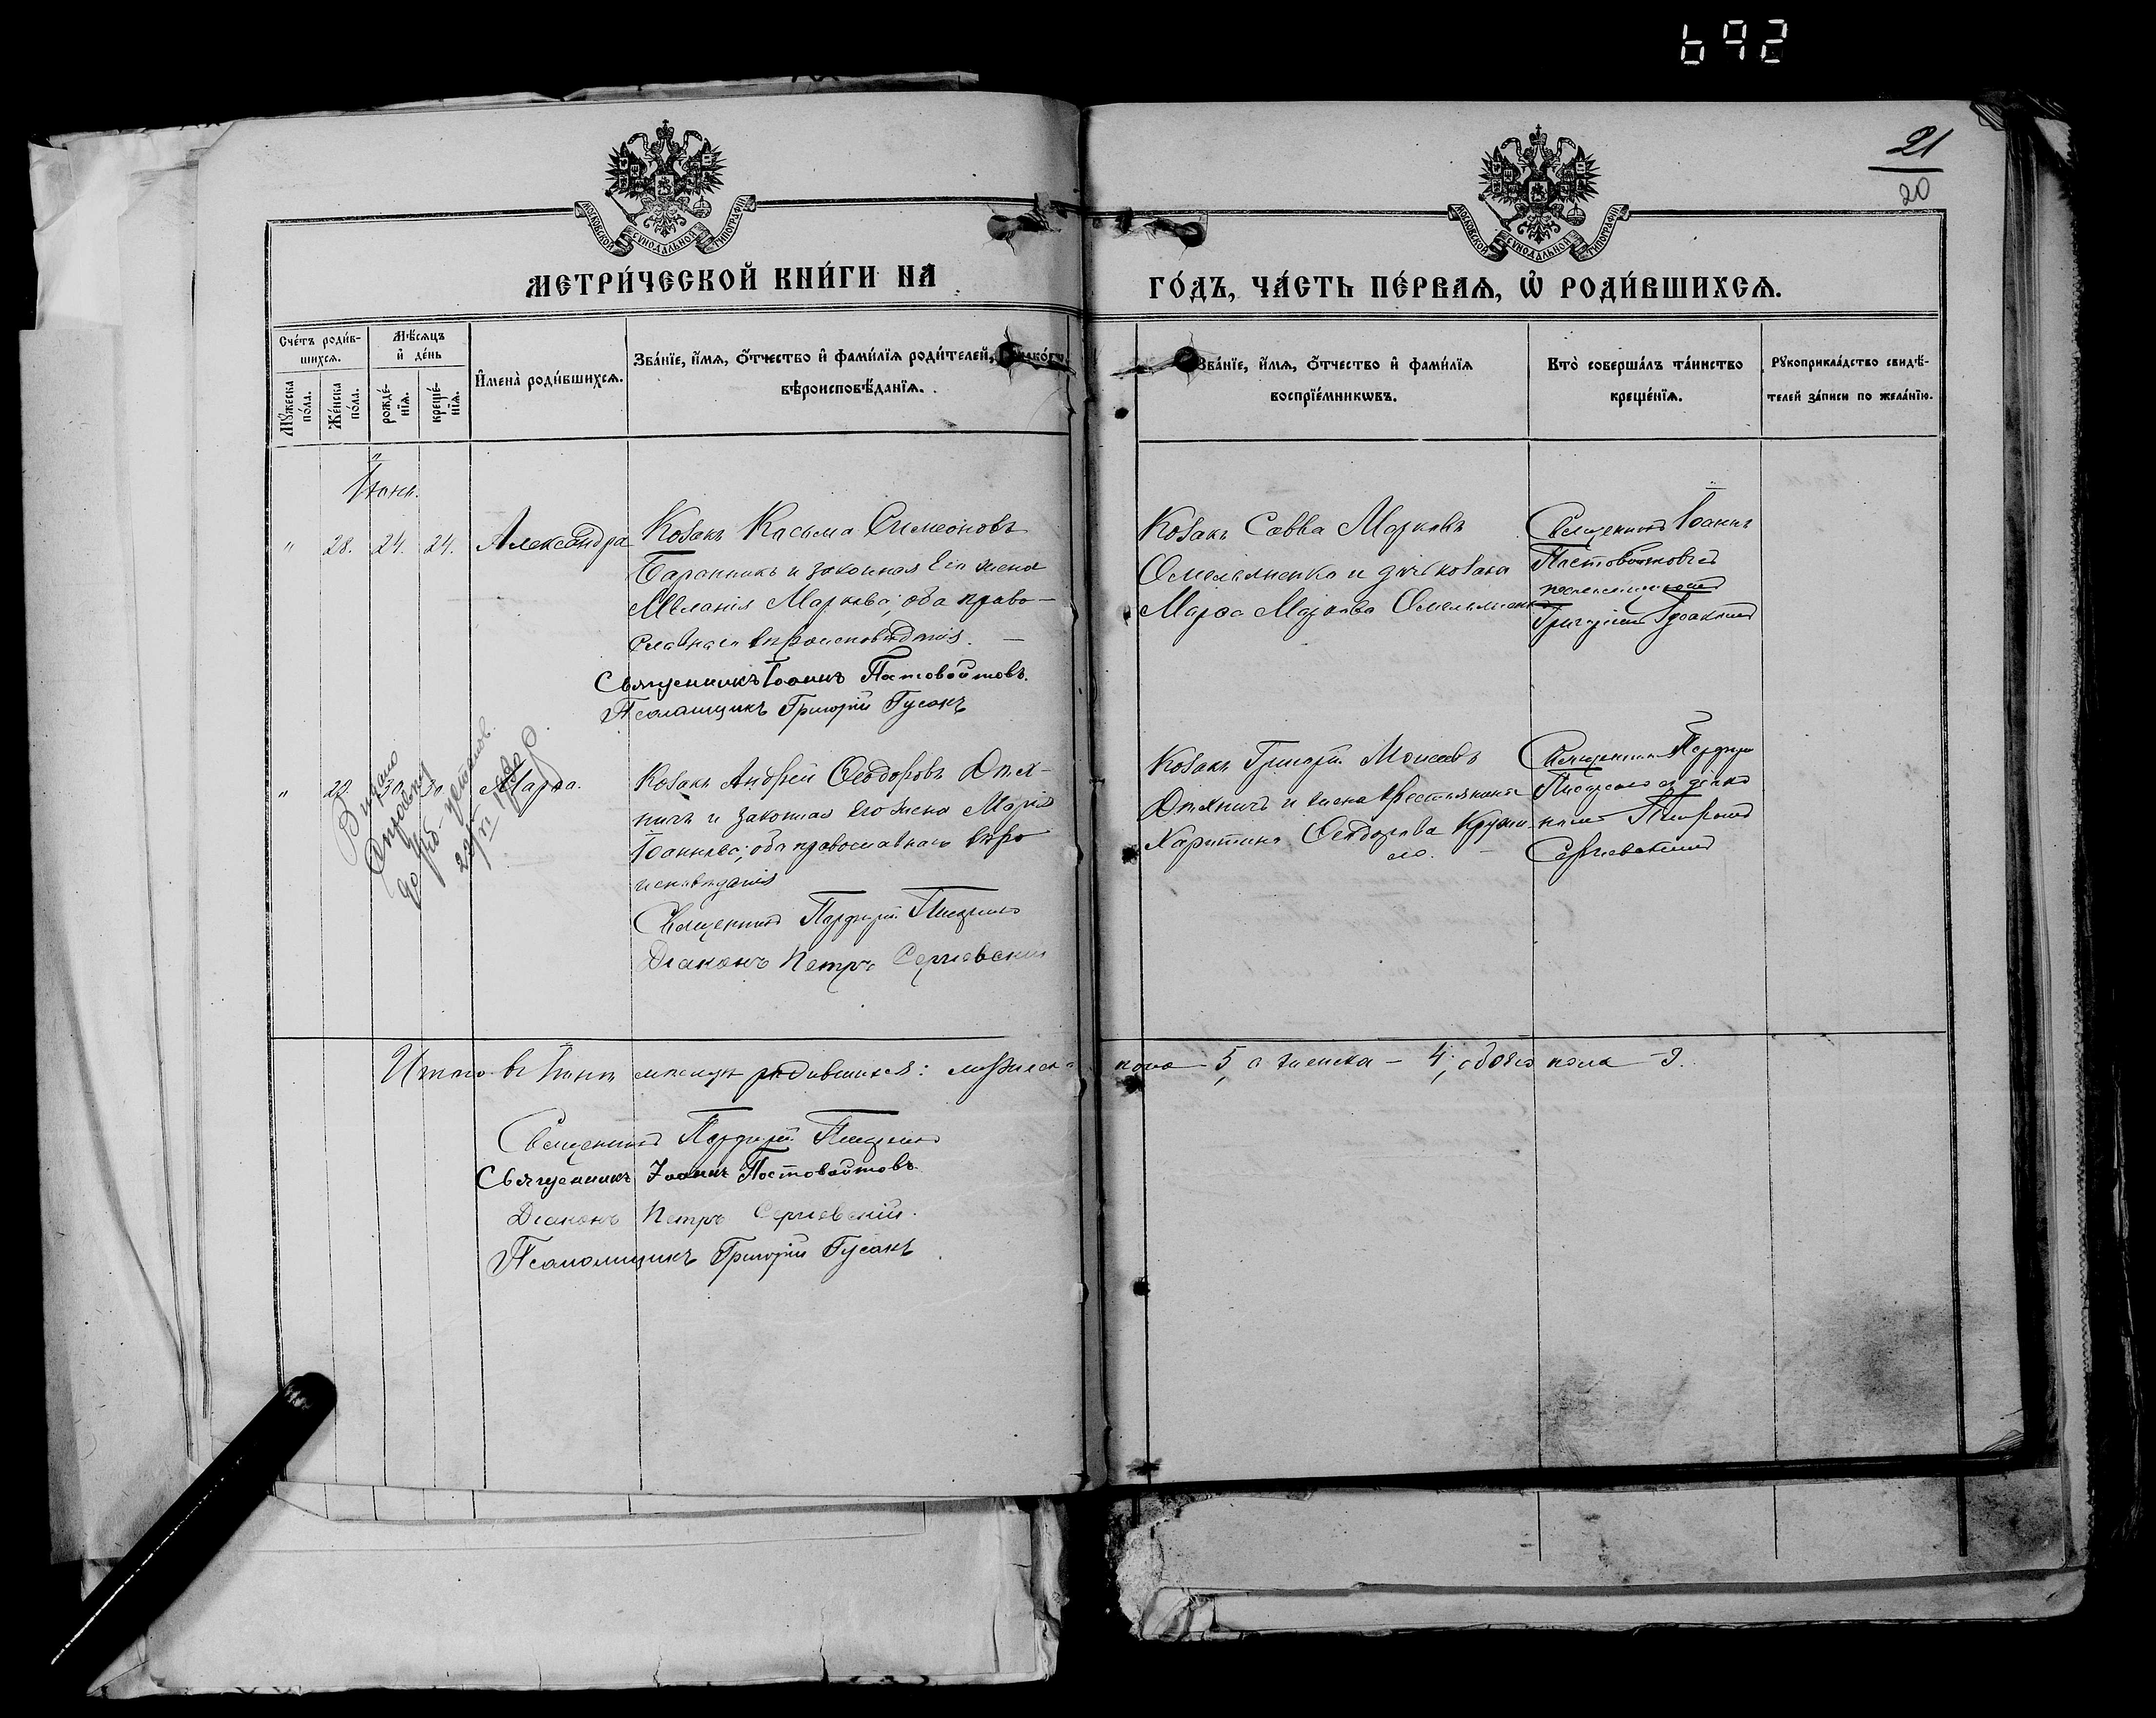 692
21
20
МОСКОВСКОЙ СѴНОДАЛЬНОЙ ТИПОГРАФІИ
МОСКОВСКОЙ СѴНОДАЛЬНОЙ ТИПОГРАФІИ
МЕТРИ́ЧЕСКОЙ КНИ́ГИ НА
ГО́ДЪ, ЧА́СТЬ ПЕ́РВАѦ, Ѡ҆ РОДИ́ВШИХСѦ.
Сче́тъ роди́в-
шихсѧ.
Мѣ́сѧцъ
и҆ де́нь
Мꙋ́жеска
по́ла.
Же́нска
по́ла.
рожде́-
нїѧ.
креще́-
нїѧ.
И҆мена̀ роди́вшихсѧ.
Зва́нїе, и҆́мѧ, ѻ҆́тчество и҆ фами́лїѧ роди́телей,
вѣроисповѣ́данїѧ.
Зва́нїе, и҆́мѧ, ѻ҆́тчество и҆ фами́лїѧ
воспрїе́мникѡвъ.
Кто̀ соверша́лъ та́инство
креще́нїѧ.
Рꙋкоприкла́дство свидѣ́-
телей за́писи по жела́нїю.
Іюнь.
" 28. 24. 24. Александра
Козакъ Косьма Симеоновъ
Баранникъ и законная его жена
Меланія Маркова; оба право-
славнаго вѣроисповѣданія. —
Священникъ Іоаннъ Постовойтовъ.
Псаломщикъ Григорій Гусакъ
Козакъ Савва Марковъ
Омельяненко и дочь козака
Марѳа Маркова Омельяненко
Священникъ Іоаннъ
Постовойтовъ съ
псаломщикомъ
Григоріемъ Гусакомъ
" 29. 30. 30. Марѳа.
Козакъ Андрей Ѳеодоровъ
и законная его жена Марія
Іоаннова; оба православнаго вѣро
исповѣданія
Священникъ Порфирій
Діаконъ Петръ Сергіевскій
Козакъ Григорій Моисеевъ
и жена крестьянина
Харитина Ѳеодорова
Священникъ Порфирій
съ діако
номъ Петромъ
Сергіевскимъ
Видано
Итого въ Іюнѣ мѣсяцѣ родившихся: мужеска пола — 5, а женска — 4; обоего пола — 9.
Священникъ Порфирій
Священникъ Іоаннъ Постовойтовъ
Діаконъ Петръ Сергіевскій.
Псаломщикъ Григорій Гусакъ